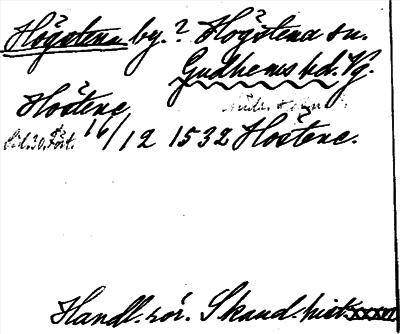 Högstena by. ? Högstena sn.
Gudhems hd. Vg.
Höstene
16/12 1532 Hostene.
Handl. rör. Skand. hist.